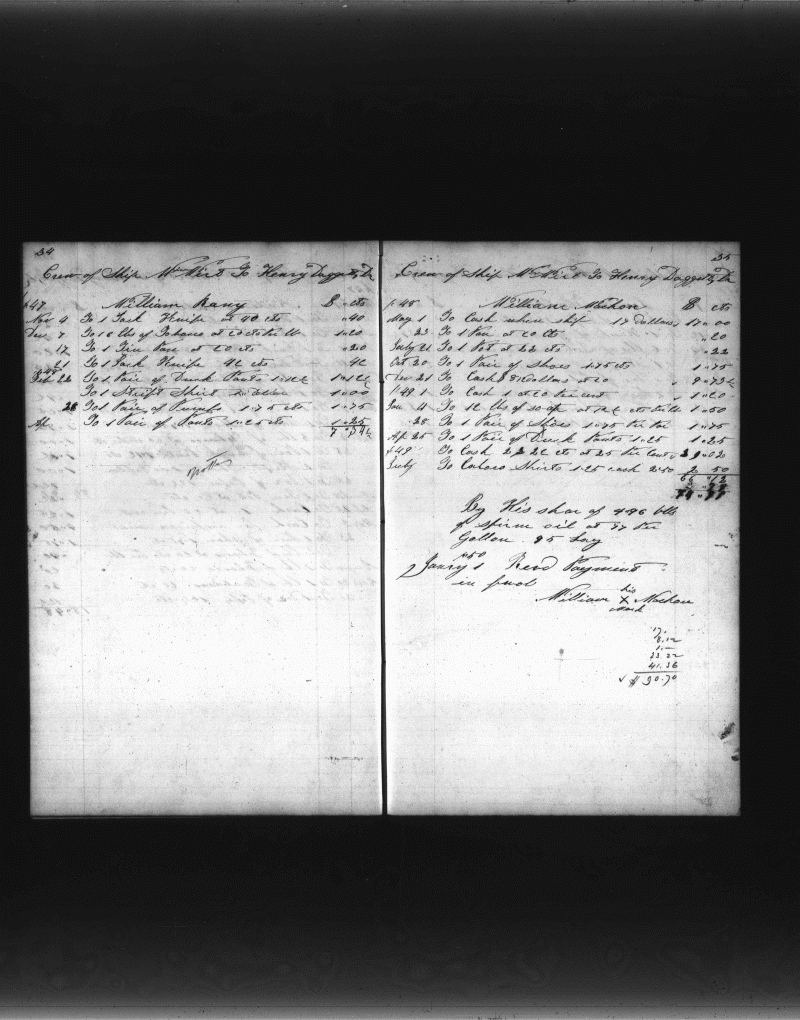 34
Crew of Ship Wm Wirt To Henry Daggett Dr
1847 William Rany $ cts
Nov 4 To 1 Jack Knife at 40 cts "40
Dec 7 To 6 lbs of Tobacco at 20 cts the lb 1"20
17 To 1 Tin Pan at 20 cts "20
To 1 Jack Knife 42 cts 42
1848
Feb 22 To 1 Pair of Duck Pants 1"12½ 1"12½
To 1 Stripd Shirt 1"00
28 To 1 Pair of Pumps 1"75 cts 1"75
Ap To 1 Pair of Pants 1"25 cts 1"25
35
Crew of Ship Wm Wirt To Henry Daggett Dr
1848 William Machon $ cts
May 1 To Cash when ship 17 dollars 17"00
23 To 1 Pan at 20 cts "20
July 21 To 1 Pot at 22 cts "22
Oct 20 To 1 Pair of Shoes 1"75 cts 1"75
Dec 21 To Cash $ 8 Dollars at 20 9"73½
1849 1 To Cash 1 at 20 per cent 1"20
Jan 4 To 12 lbs of soap at 12½ cts the lb 1"50
28 To 1 Pair of Shoes 1"75 the Pr 1"75
Ap 25 To 1 Pair of Duck Pants 1"25 1"25
1849 To Cash at 25 per cent
July To Calico Shirts 1"25 cash 2"50 2 50
By His shar of 496 blls
of spirm oil at 87 per
Gallon. 95 Lay
1850
Janry 1 Recd Payment
in full
William his X mark Machon
17.
8.12
33.22
41.36
✓ $ 90.70